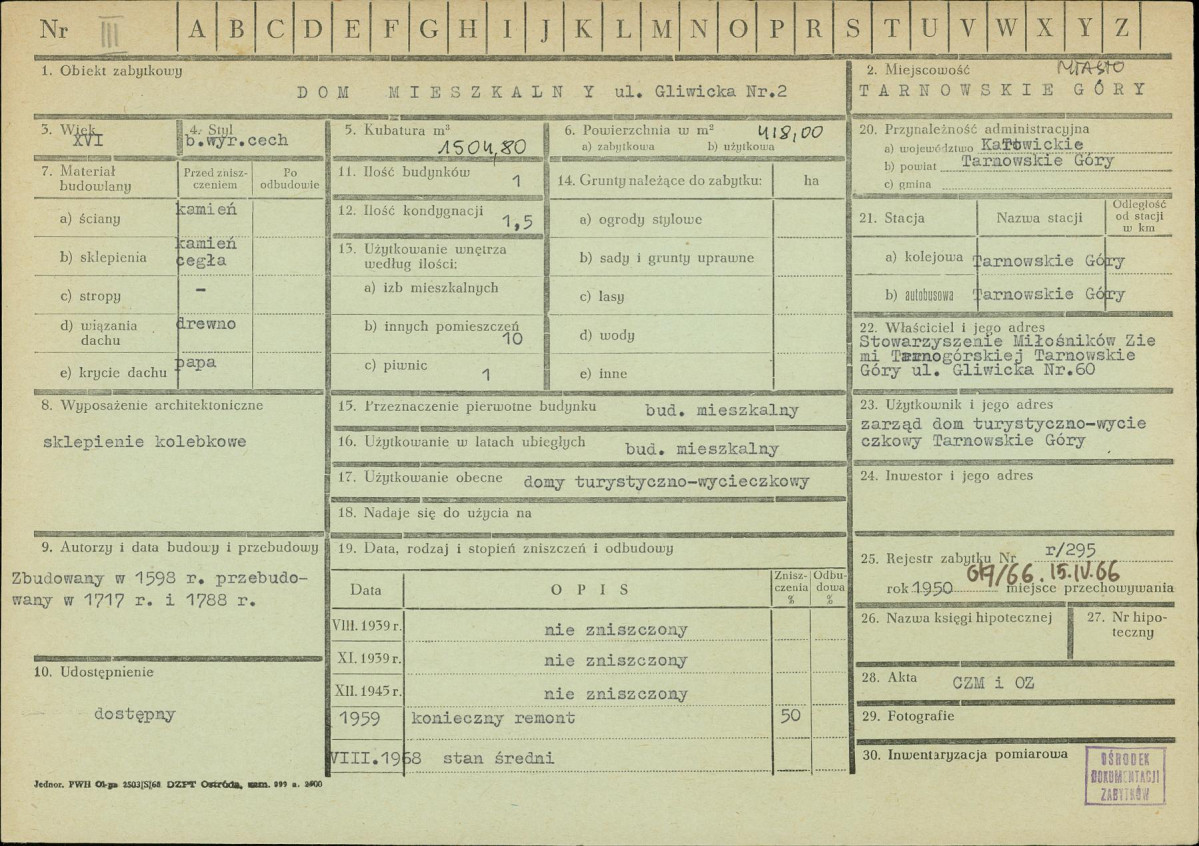 Nr III A B C D E F G H I J K L M N O P R S T U V W X Y Z
1. Obiekt zabytkowy
DOM MIESZKALNY ul. Gliwicka Nr.2
2. Miejscowość MIASTO
TARNOWSKIE GÓRY
3. Wiek
XVI
4. Styl
b.wyr.cech
5. Kubatura m³
1504,80
6. Powierzchnia w m² 418,00
a) zabytkowa b) użytkowa
20. Przynależność administracyjna
a) województwo Katowickie
b) powiat Tarnowskie Góry
c) gmina
7. Materiał budowlany
Przed zniszczeniem
Po odbudowie
a) ściany kamień
b) sklepienia kamień cegła
c) stropy –
d) wiązania dachu drewno
e) krycie dachu papa
11. Ilość budynków 1
12. Ilość kondygnacji 1,5
13. Użytkowanie wnętrza
według ilości:
a) izb mieszkalnych
b) innych pomieszczeń
10
c) piwnic 1
14. Grunty należące do zabytku: ha
a) ogrody stylowe
b) sady i grunty uprawne
c) lasy
d) wody
e) inne
21. Stacja Nazwa stacji Odległość od stacji w km
a) kolejowa Tarnowskie Góry
b) autobusowa Tarnowskie Góry
22. Właściciel i jego adres
Stowarzyszenie Miłośników Zie
mi Tarnogórskiej Tarnowskie
Góry ul. Gliwicka Nr.60
8. Wyposażenie architektoniczne
sklepienie kolebkowe
15. Przeznaczenie pierwotne budynku bud. mieszkalny
16. Użytkowanie w latach ubiegłych bud. mieszkalny
17. Użytkowanie obecne domy turystyczno-wycieczkowy
18. Nadaje się do użycia na
23. Użytkownik i jego adres
zarząd dom turystyczno-wycie
czkowy Tarnowskie Góry
24. Inwestor i jego adres
9. Autorzy i data budowy i przebudowy
Zbudowany w 1598 r. przebudo-
wany w 1717 r. i 1788 r.
10. Udostępnienie
dostępny
19. Data, rodzaj i stopień zniszczeń i odbudowy
Data OPIS Zniszczenia % Odbudowa %
VIII. 1939 r. nie zniszczony
XI. 1939 r. nie zniszczony
XII. 1945 r. nie zniszczony
1959 konieczny remont 50
VIII.1968 stan średni
25. Rejestr zabytku Nr r/295
619/66. 15.IV.66
rok 1950 miejsce przechowywania
26. Nazwa księgi hipotecznej
27. Nr hipo-
teczny
28. Akta CZM i OZ
29. Fotografie
30. Inwentaryzacja pomiarowa
OŚRODEK
DOKUMENTACJI
ZABYTKÓW
Jednor. PWH DZPT Ostróda,